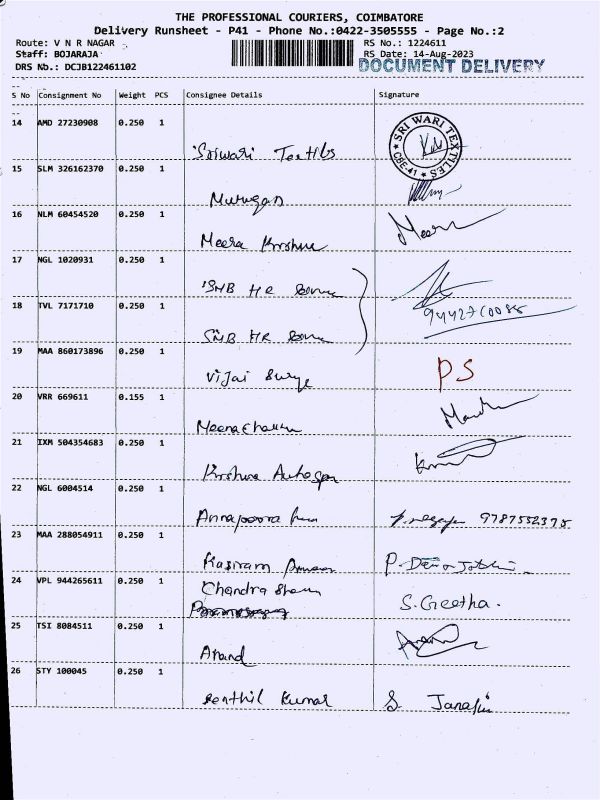 THE PROFESSIONAL COURIERS, COIMBATORE
Delivery Runsheet - P41 - Phone No.:0422-3505555 - Page No.:2
Route: V N R NAGAR
RS No.: 1224611
Staff: BOJARAJA
RS Date: 14-Aug-2023
DRS No.: DCJB122461102
DOCUMENT DELIVERY
S No Consignment No Weight PCS Consignee Details Signature
14 AMD 27230908 0.250 1
Sriwari Textils
SRI WARI TEXTILES
CBE-41
15 SLM 326162370 0.250 1
Murugan
16 NLM 60454520 0.250 1
Meera Krishna Meera
17 NGL 1020931 0.250 1
SMB HR
18 TVL 7171710 0.250 1
9442710088
SMB HR
19 MAA 860173896 0.250 1
Vijai Surya PS
20 VRR 669611 0.155 1
21 IXM 504354683 0.250 1
Krishna
22 NGL 6004514 0.250 1
Annapoorna 9787552375
23 MAA 288054911 0.250 1
Kasiram P.
24 VPL 944265611 0.250 1
Chandra
S. Geetha.
25 TSI 8084511 0.250 1
Anand
26 STY 100045 0.250 1
Senthil Kumar S